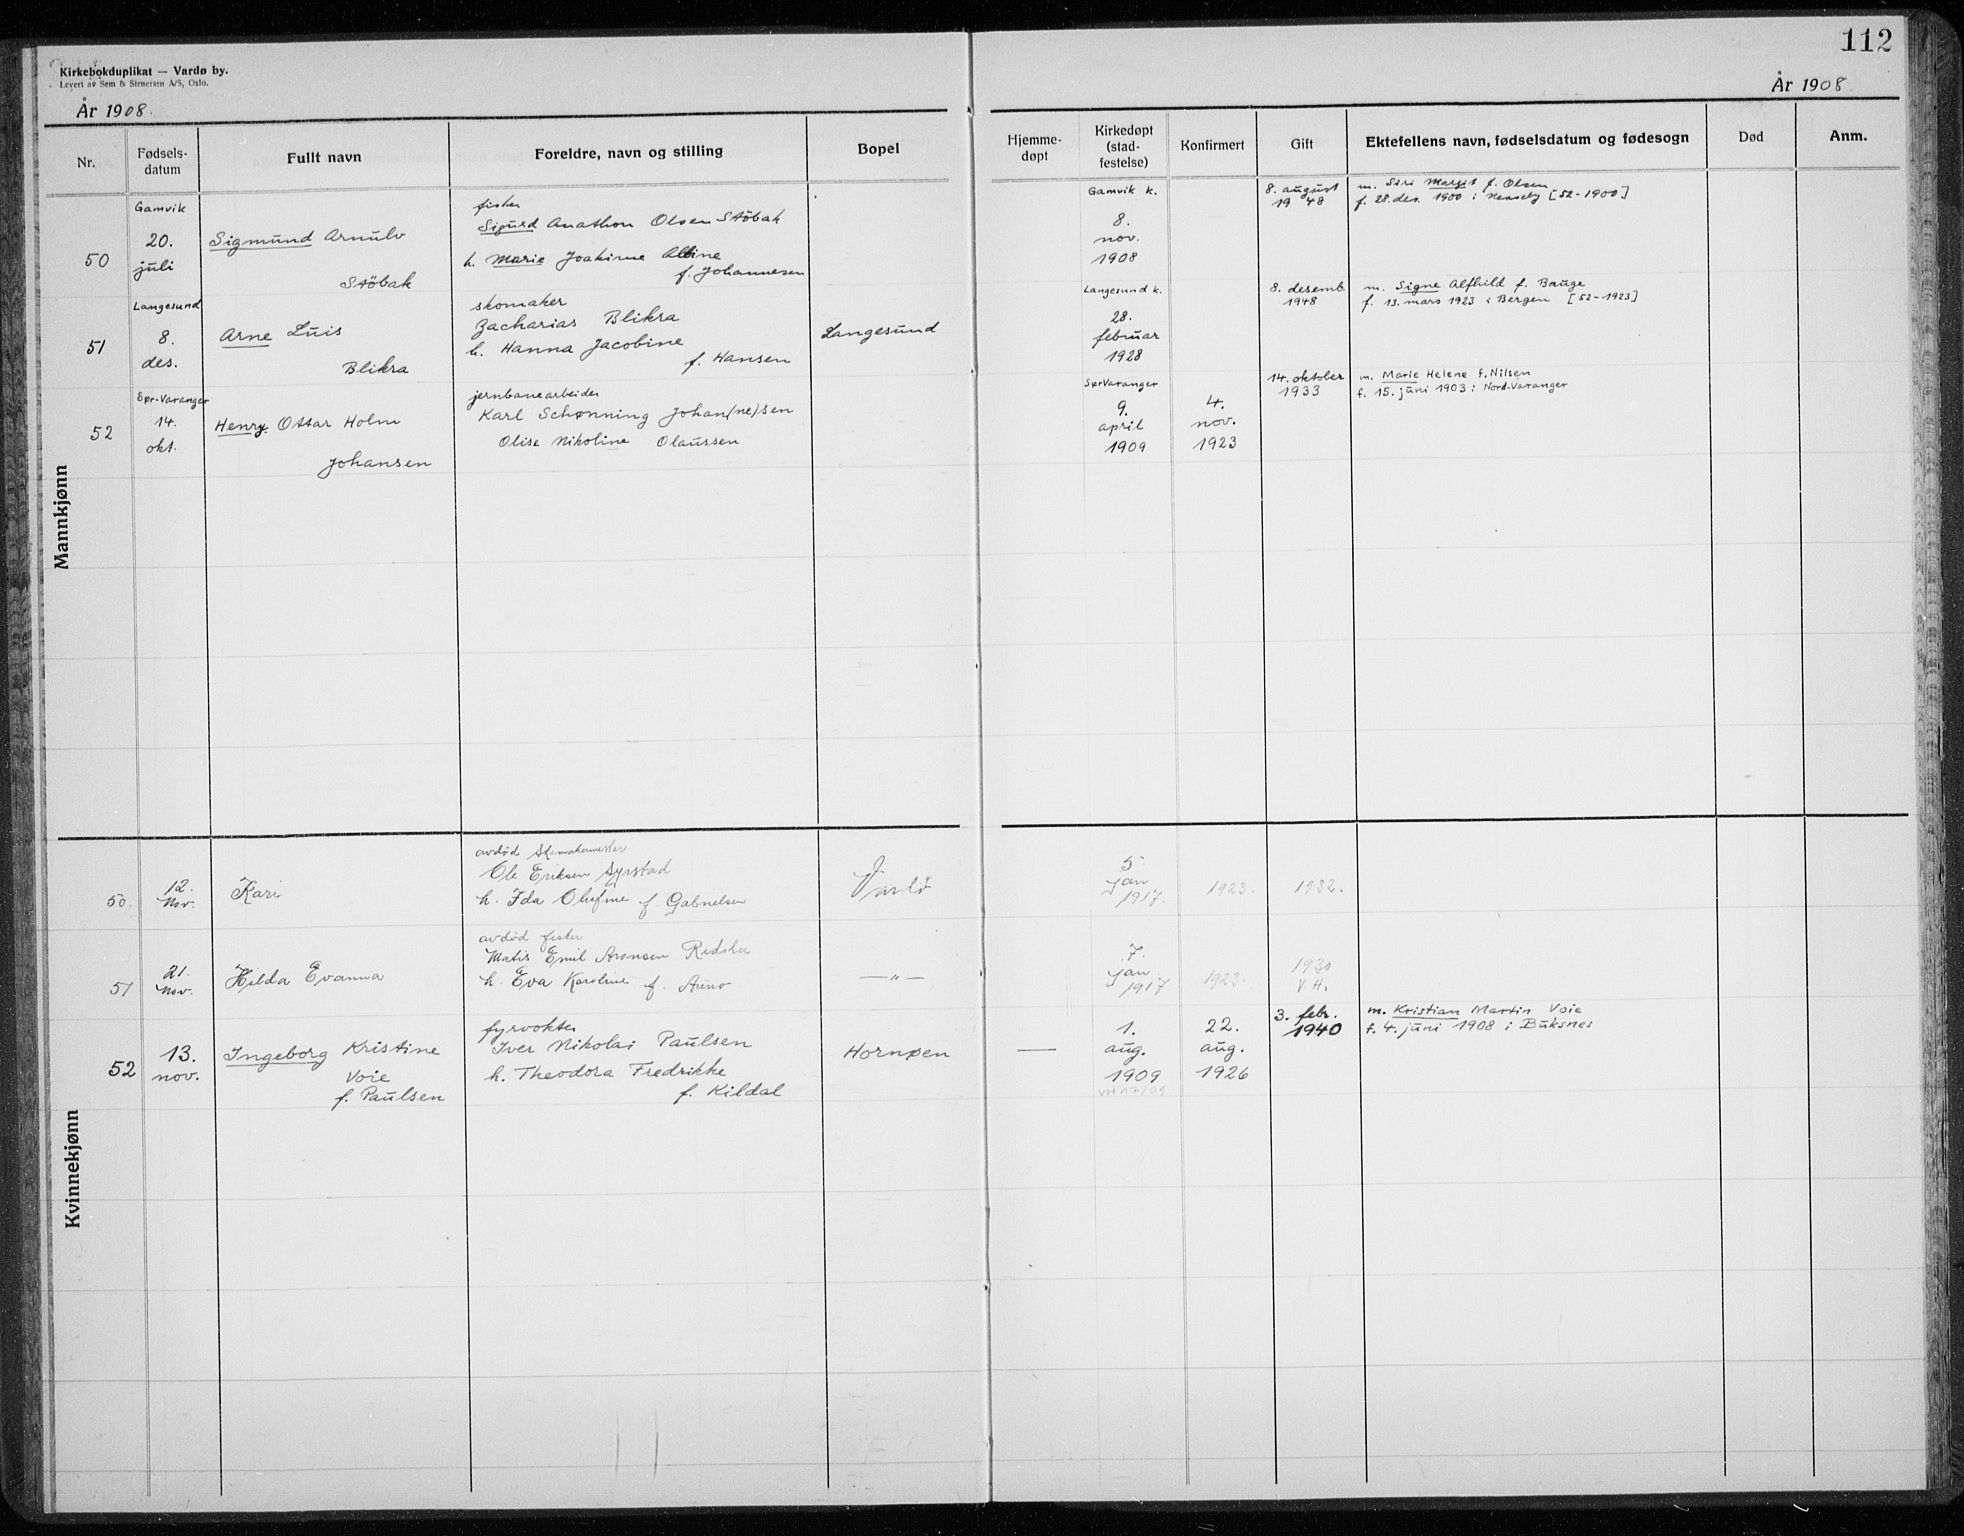 112
Kirkebokduplikat — Vardø by.
Levert av Sem & Stenersen A/S, Oslo.
År 1908.
År 1908
Nr.
Fødsels-
datum
Fullt navn
Foreldre, navn og stilling
Bopel
Hjemme-
døpt
Kirkedøpt
(stad-
festelse)
Konfirmert
Gift
Ektefellens navn, fødselsdatum og fødesogn
Død
Anm.
Mannkjønn
50
Gamvik
20.
juli
Sigmund Arnulv
Støbak
fisker
Sigurd Anathon Olsen Støbak
h. Marie Joakime Albine
f. Johannesen
Gamvik k.
8.
nov.
1908
8. august
1948
m. Siri Margit f. Olsen
f. 28. des. 1900 i [52-1900]
51
Langesund
8.
des.
Arne Luis
Blikra
skomaker
Zacharias Blikra
h. Hanna Jacobine
f. Hansen
Langesund
Langesund k.
28.
februar
1928
8. desemb.
1948
m. Signe Alfhild f. Bauge
f. 13. mars 1923 i Bergen [52-1923]
52
Sør-Varanger
14.
okt.
Henry Ottar Holm
Johansen
jernbanearbeider
Karl Schønning Johan(ne)sen
Olise Nikoline Olaussen
SørVaranger
9.
april
1909
4.
nov.
1923
14. oktober
1933
m. Marie Helene f. Nilsen
f. 15. juni 1903 i Nord-Varanger
Kvinnekjønn
50.
12.
Nov.
Kari
avdød Skomakermester
Ole Eriksen Syrstad
h. Ida Olufine f. Gabrielsen
Vardø
5
Jan
1917.
1923.
1932.
51
21.
Nov.
Hilda Evanna
avdød fisker
Matis Emil Aronsen
h. Eva Karoline f.
—"—
7.
Jan.
1917
1923.
1930
V.H.
52
13.
nov.
Ingeborg Kristine
Voie
f. Paulsen
fyrvokter
Iver Nikolai Paulsen
h. Theodora Fredrikke
f. Kildal
Hornøen
—
1.
aug.
1909
22.
aug.
1926
3. febr.
1940
m. Kristian Martin Voie
f. 4. juni 1908 i Buksnes